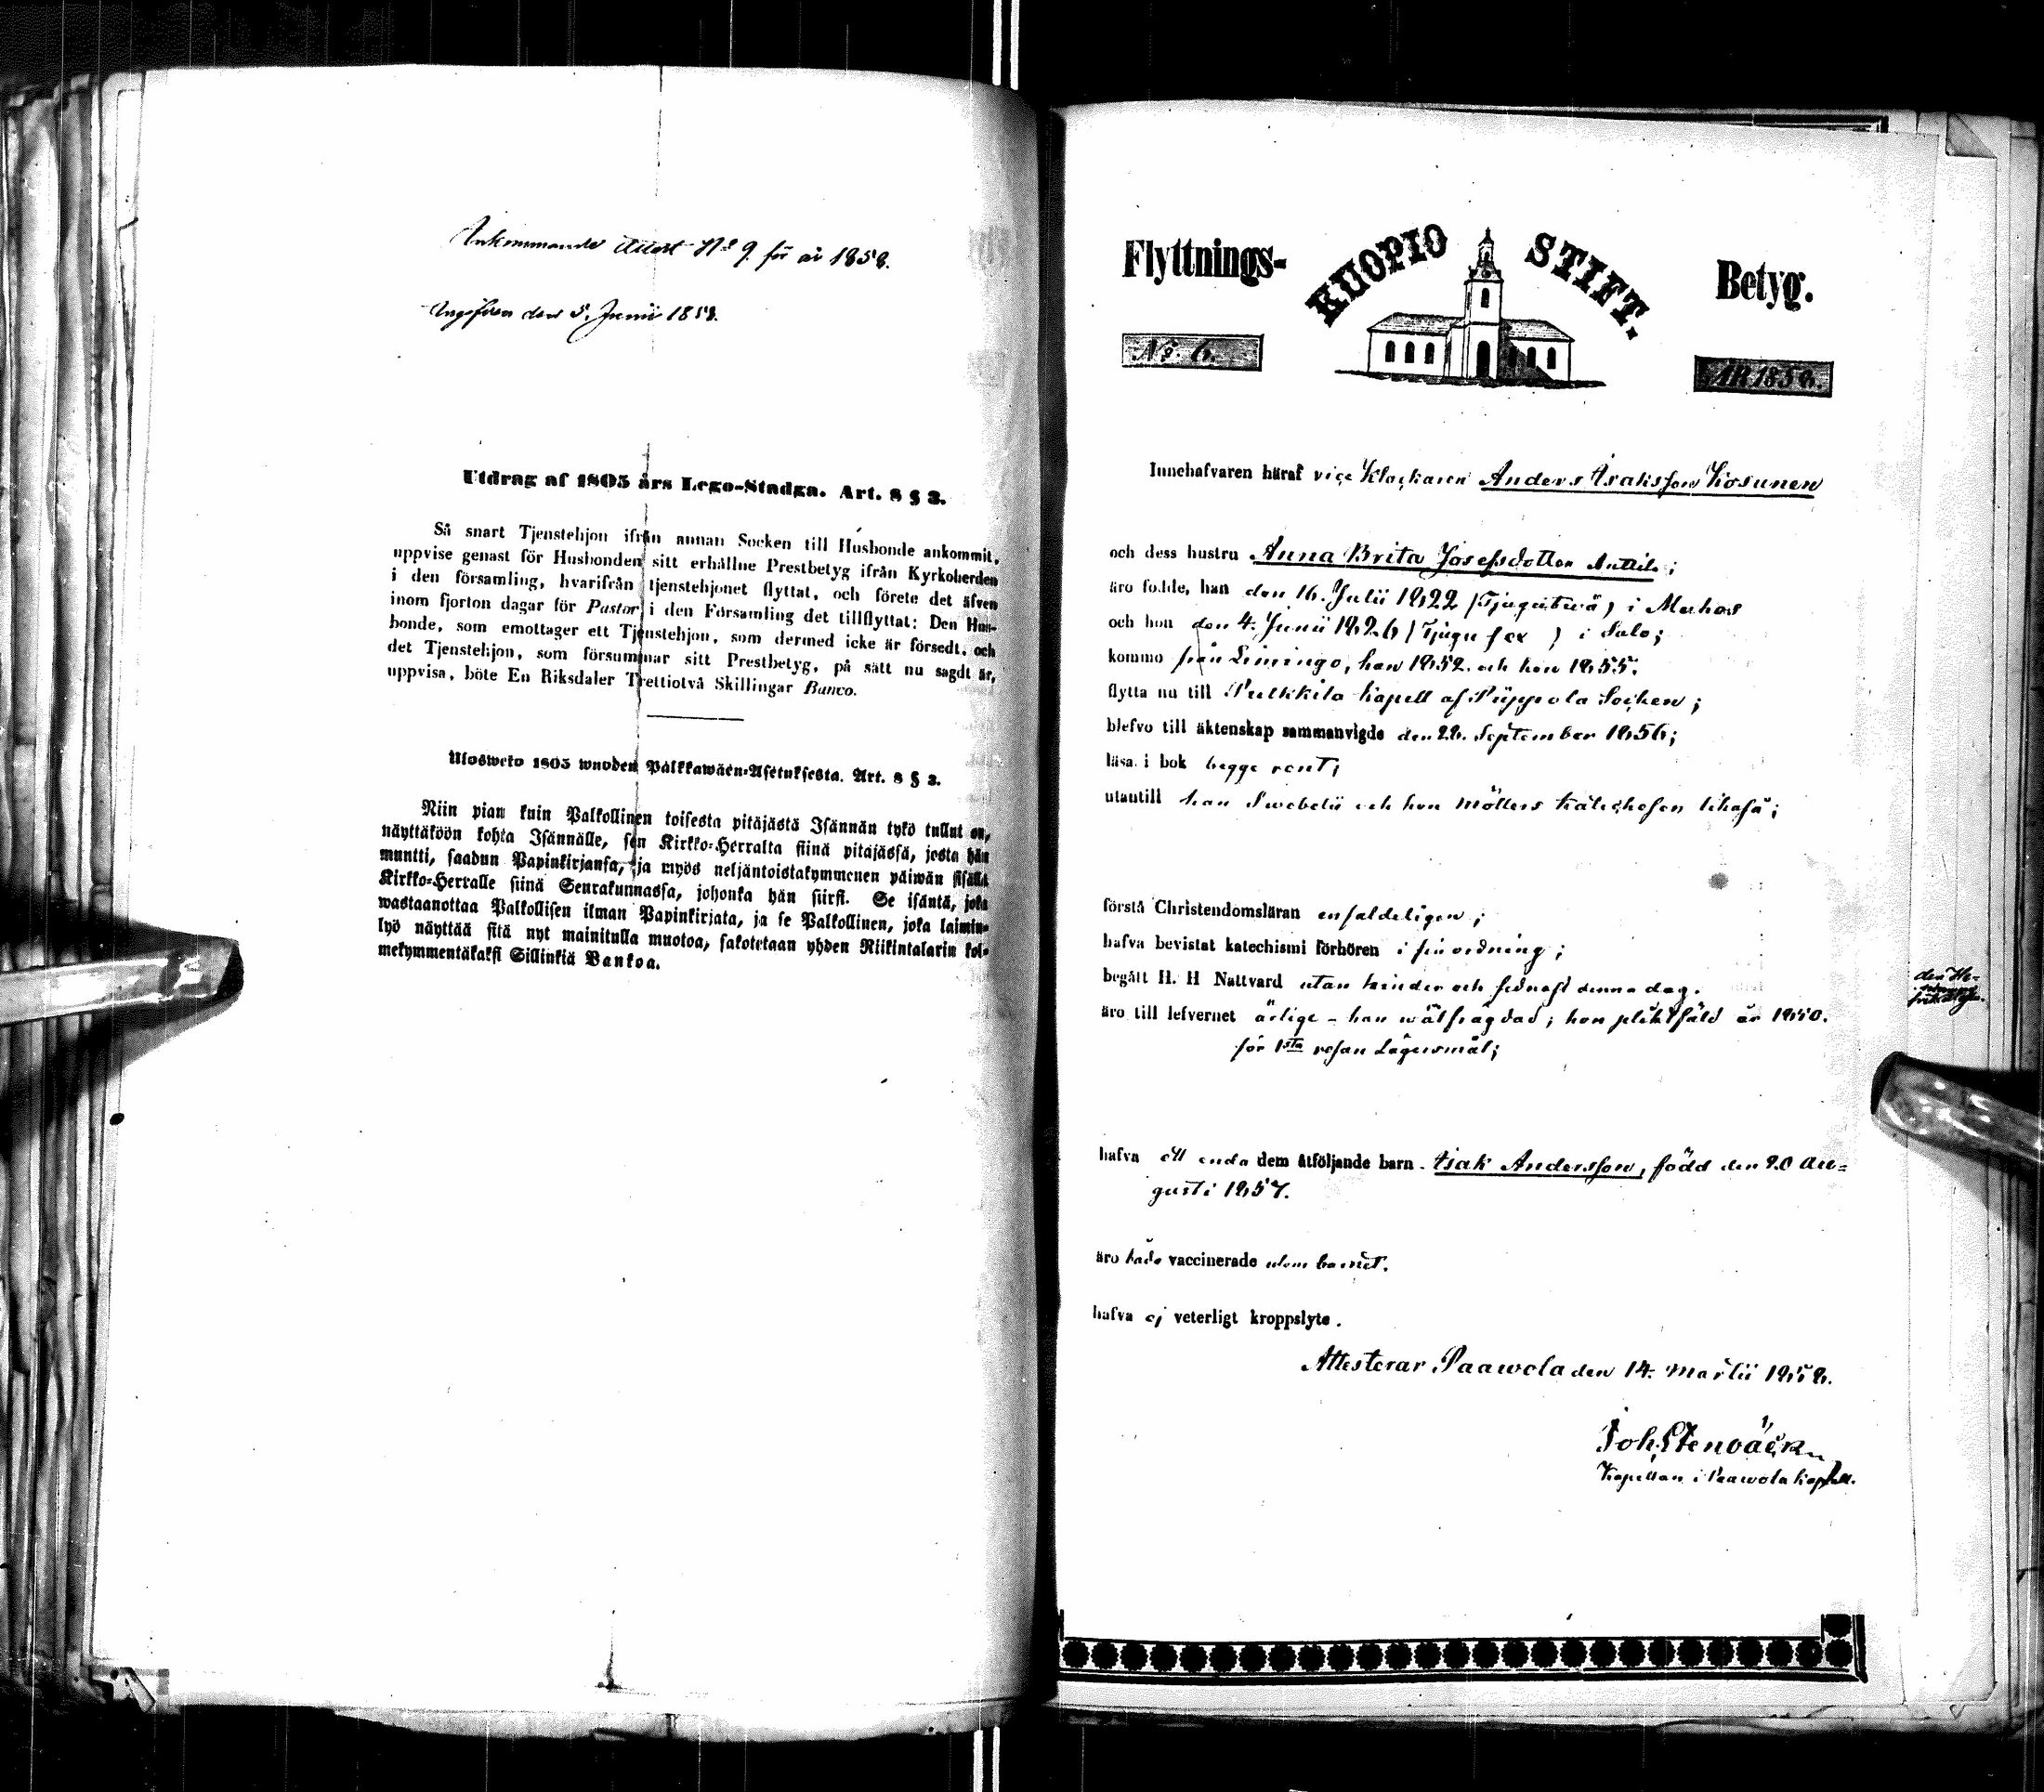 Ankommande Attest No 9. för år 1858.
Uppvisen den 5. Junii 1858.
Utdrag af 1805 års Lego-Stadga. Art. 8 § 3.
Så snart Tjenstehjon ifrån annan Socken till Husbonde ankommit,
uppvise genast för Husbonden sitt erhållne Prestbetyg ifrån Kyrkoherden
i den församling, hvarifrån tjenstehjonet flyttat, och förete det äfven
inom fjorton dagar för Pastor i den Församling det tillflyttat: Den Hus-
bonde, som emottager ett Tjenstehjon, som dermed icke är försedt, och
det Tjenstehjon, som försummar sitt Prestbetyg, på sätt nu sagdt är,
uppvisa, böte En Riksdaler Trettiotvå Skillingar Banco.
Ulosweto 1805 wuoden Palkkawäen-Asetuksesta. Art. 8 § 3.
Niin pian kuin Palkollinen toisesta pitäjästä Isännän tykö tullut on,
näyttäköön kohta Isännälle, sen Kirkko-Herralta siinä pitäjässä, josta hän
muutti, saadun Papinkirjansa, ja myös neljäntoistakymmenen päiwän sisällä
Kirkko-Herralle siinä Seurakunnassa, johonka hän siirsi. Se isäntä, joka
wastaanottaa Palkollisen ilman Papinkirjata, ja se Palkollinen, joka laimin-
lyö näyttää sitä nyt mainitulla muotoa, sakotetaan yhden Riikintalarin kol-
mekymmentäkaksi Sillinkiä Bankoa.
Flyttnings- KUOPIO STIFT. Betyg.
No. 6. ÅR 1858.
Innehafvaren häraf vice Klockaren Anders Isaksson Kosunen
och dess hustru Anna Brita Josefsdotter Anttila;
äro födde, han den 16. Julii 1822 (Tjugutwå) i Muhos
och hon den 4. Junii 1826 (Tjugusex) i Salo;
kommo från Limingo, han 1852. och hon 1855.
flytta nu till Pulkkila kapell af Piippola Socken;
blefvo till äktenskap sammanvigde den 28. September 1856;
läsa i bok begge rent;
utantill han Swebelii och hon Möllers kateches en likaså;
förstå Christendomsläran enfaldeligen;
hafva bevistat katechismi förhören i sin ordning;
begått H. H Nattvard utan hinder och sednast denna dag.
äro till lefvernet ärlige - han wälfrägdad; hon pliktfäld år 1850.
för 1sta resan Lägersmål;
hafva ett enda dem åtföljande barn. Isak Andersson, född den 20 Au-
gusti 1857.
äro både vaccinerade utom barnet.
hafva ej veterligt kroppslyte.
Attesterar Paawola den 14. Martii 1858.
Joh. Stenbäck
Kapellan i Paawola kapell.